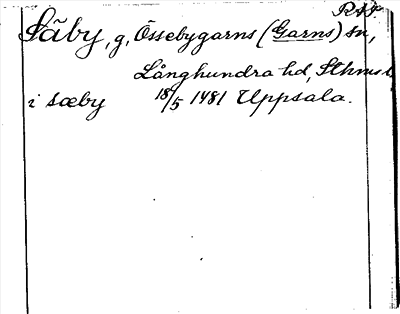 RAP.
Säby, g, Össebygarns (Garns) sn,
Långhundra hd, Sthms l.
i sæby 18/5 1481 Uppsala.